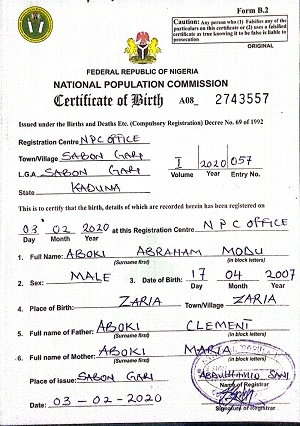 Form B.2
Caution: Any person who (1) Falsifies any of the
particulars on this certificate or (2) uses a falsified
certificate as true knowing it to be false is liable to
prosecution
ORIGINAL
FEDERAL REPUBLIC OF NIGERIA
NATIONAL POPULATION COMMISSION
Certificate of Birth A08_ 2743557
Issued under the Births and Deaths Etc. (Compulsory Registration) Decree No. 69 of 1992
Registration Centre NPC OFFICE
Town/Village SABON GARI
L.G.A SABON GARI
State KADUNA
I 2020 057
Volume Year Entry No.
This is to certify that the birth, details of which are recorded herein has been registered on
03 02 2020 at this Registration Centre NPC OFFICE
Day Month Year
1. Full Name: ABOKI ABRAHAM MODU
(Surname first) (in block letters)
2. Sex: MALE 3. Date of Birth: 17 04 2007
Day Month Year
4. Place of Birth: ZARIA Town/Village ZARIA
5. Full name of Father: ABOKI CLEMENT
(Surname first) (in block letters)
6. Full name of Mother: ABOKI MARIA
(Surname first) (in block letters)
Place of issue: SABON GARI ABDULHAMID SANI
Name of Registrar
Date: 03-02-2020
Signature of Registrar